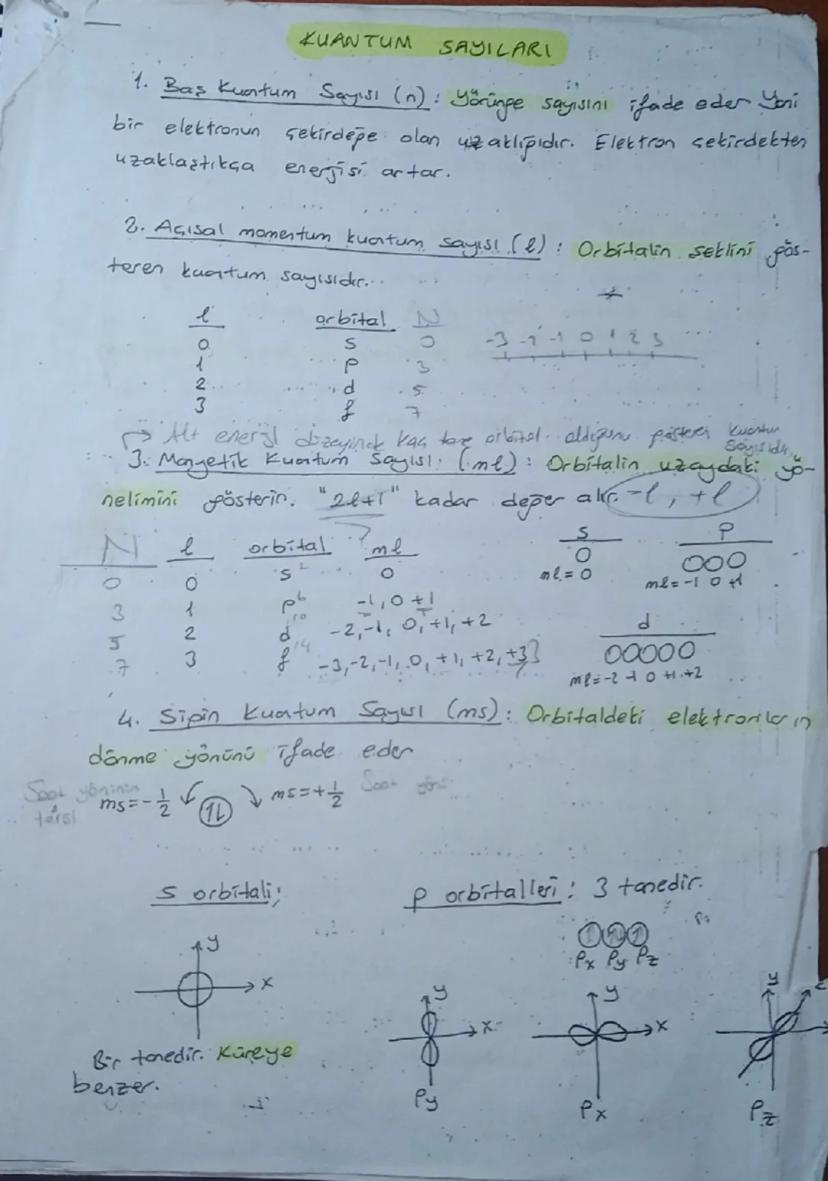 KUANTUM SAYILARI
1. Baş Kuantum Sayısı (n) : Yörünge sayısını ifade eder Yani
bir elektronun çekirdeğe olan uzaklığıdır. Elektron çekirdekten
uzaklaştıkça enerjisi artar.
2. Açısal momentum kuantum sayısı (l) : Orbitalin şeklini gös-
teren kuantum sayısıdır.
l orbital N
0 s 0
1 p 3
2 d 5
3 f 7
-3 -2 -1 0 1 2 3
→ Alt enerji düzeyinde kaç tane orbital olduğunu gösteren kuantum
sayısıdır
3. Manyetik Kuantum Sayısı (ml) : Orbitalin uzaydaki yö-
nelimini gösterir. "2l+1" kadar değer alır. -l, +l
N l orbital ml
0 0 s² 0
3 1 p⁶ -1, 0 +1
5 2 d¹⁰ -2, -1, 0, +1, +2
7 3 f¹⁴ -3, -2, -1, 0, +1, +2, +3
s p
ml = 0 ml = -1 0 +1
d
ml = -2 -1 0 +1 +2
4. Sipin Kuantum Sayısı (ms) : Orbitaldeki elektronların
dönme yönünü ifade eder
Saat yönünün ms = -1/2 ↙ 1⇂ ↘ ms = +1/2 Saat yönü
tersi
s orbitali; p orbitalleri : 3 tanedir.
Px Py Pz
y x
y x
y x
y z
Bir tanedir. Küreye
benzer.
Py Px Pz